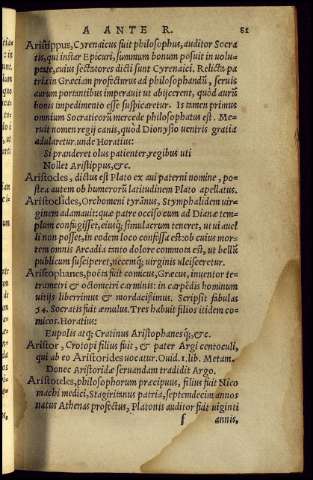 A ANTE R. 81
Aristippus, Cyrenaicus fuit philosophus, auditor Socra
tis, qui instar Epicuri, summum bonum posuit in uolu-
ptate, cuius sectatores dicti sunt Cyrenaici. Relicta pa
tria in Græciam profecturus ad philosophandū, seruis
aurum portantibus imperauit ut abijcerent, quòd auru͂
bonis impedimento esse suspicaretur. Is tamen primus
omnium Socraticorũ mercede philosophatus est. Me-
ruit nomen regij canis, quòd Dionysio uentris gratia
adularetur. unde Horatius:
Si pranderet olus patienter, regibus uti
Nollet Aristippus, &c.
Aristocles, dictus est Plato ex aui paterni nomine, po-
stea autem ob humerorũ latitudinem Plato apellatus.
Aristoclides, Orchomeni tyrãnus, Stymphalidem uir-
ginem adamauit: quæ patre occiso cum ad Dianæ tem-
plum confugisset, eiusq́; simulacrum teneret, ut ui auel
li non posset, in eodem loco confossa est: ob cuius mor-
tem omnis Arcadia tanto dolore commota est, ut bellũ
publicum susciperet, necemq́; uirginis ulcisceretur.
Aristophanes, poëta fuit comicus, Græcus, inuentor te-
trametri & octometri carminis: in carpēdis hominum
uitijs liberrimus & mordacissimus. Scripsit fabulas
54. Socratis fuit æmulus. Tres habuit filios itidem co-
micos. Horatius:
Eupolis atq; Cratinus Aristophanesq́;, &c.
Aristor, Crotopi filius fuit, & pater Argi centoculi,
qui ab eo Aristorides uocatur. Ouid. 1. lib. Metam.
Donec Aristoridæ seruandam tradidit Argo.
Aristoteles, philosophorum præcipuus, filius fuit Nico
machi medici, Stagiritanus patria, septendecim annos
natus Athenas profectus, Platonis auditor fuit uiginti
f annis,